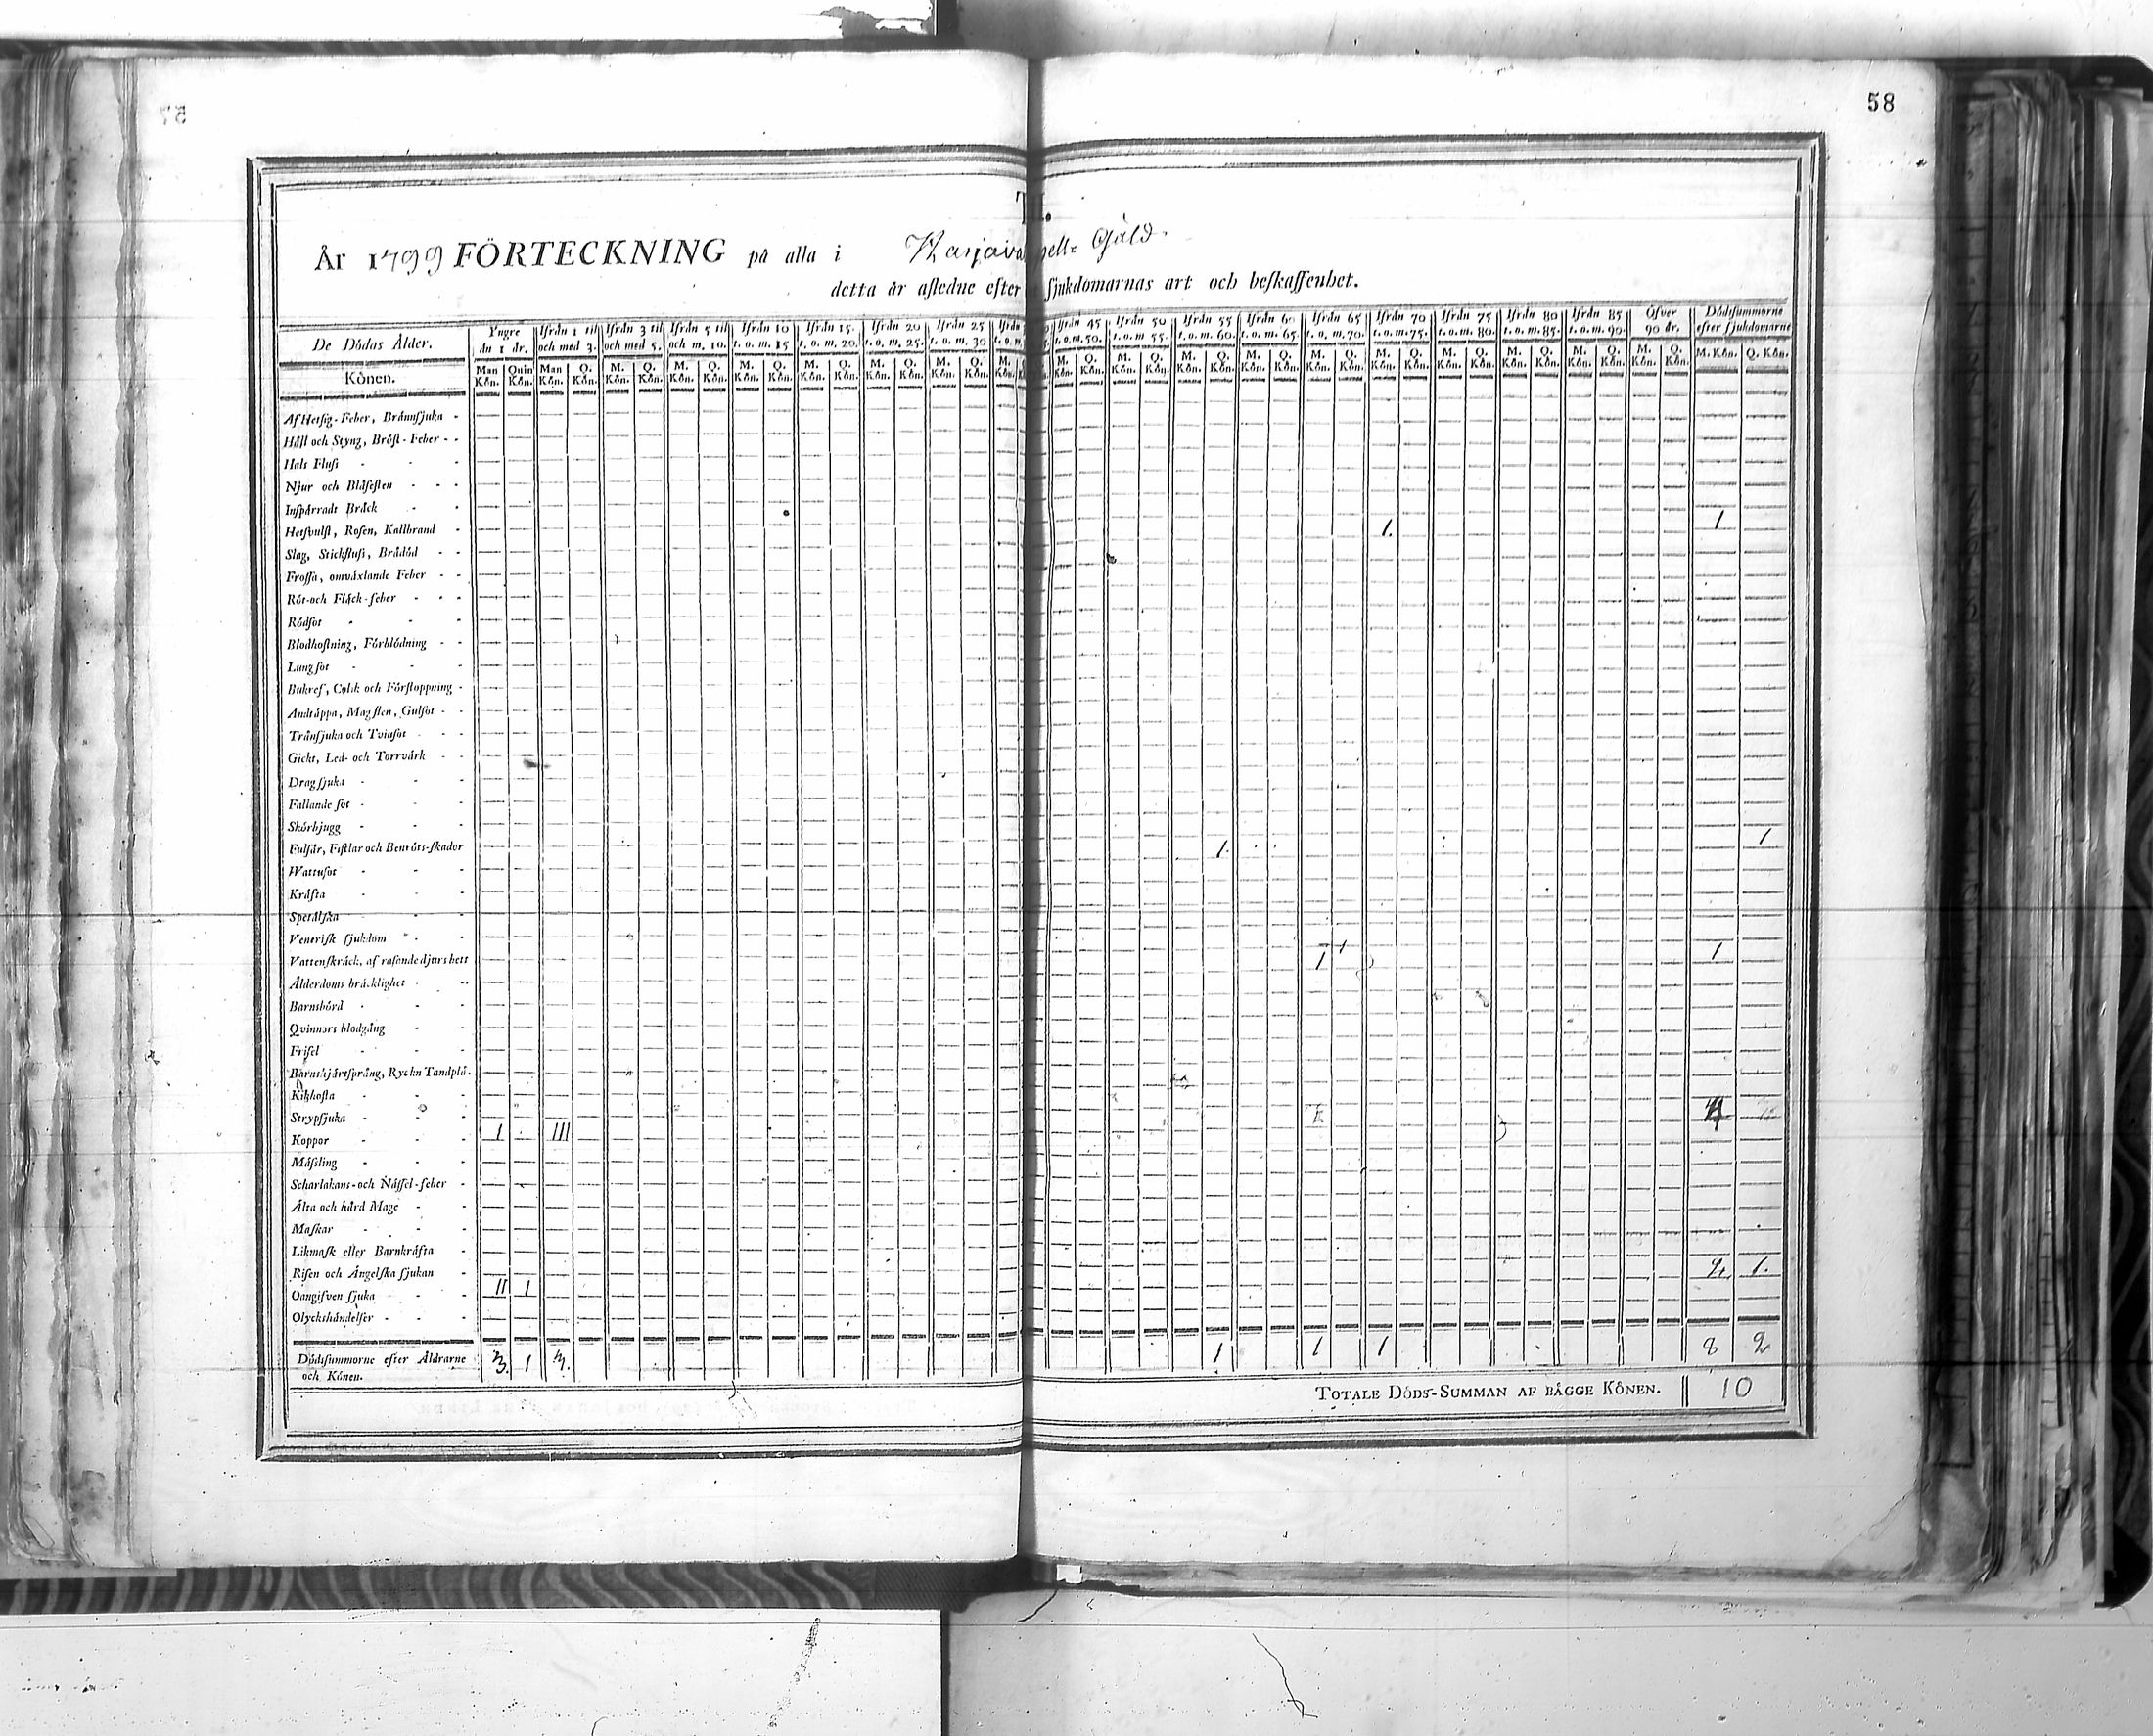 57
58
II.
År 1799 FÖRTECKNING på alla i Harjavalda Capell: Gäld
detta år afledne efter sjukdomarnas art och beskaffenhet.
De Dödas Ålder. Yngre än 1 år. Ifrån 1 til och med 3. Ifrån 3 til och med 5. Ifrån 5 til och m. 10. Ifrån 10 t. o. m. 15 Ifrån 15. t. o. m. 20. Ifrån 20 t. o. m. 25. Ifrån 25 t. o. m. 30 Ifrån t. o. m. Ifrån 45 t. o. m. 50. Ifrån 50 t. o. m 55. Ifrån 55 t. o. m. 60. Ifrån 60 t. o. m. 65. Ifrån 65 t. o. m. 70. Ifrån 70 t. o. m. 75. Ifrån 75 t. o. m. 80. Ifrån 80 t. o. m. 85. Ifrån 85 t. o. m. 90. Öfver 90 år. Dödssummorne efter sjukdomarne
Könen. Man Kön. Quin Kön. Man Kön. Q. Kön. M. Kön. Q. Kön. M. Kön. Q. Kön. M. Kön. Q. Kön. M. Kön. Q. Kön. M. Kön. Q. Kön. M. Kön. Q. Kön. M. Kön. M. Kön. Q. Kön. M. Kön. Q. Kön. M. Kön. Q. Kön. M. Kön. Q. Kön. M. Kön. Q. Kön. M. Kön. Q. Kön. M. Kön. Q. Kön. M. Kön. Q. Kön. M. Kön. Q. Kön. M. Kön. Q. Kön. M. Kön. Q. Kön.
Af Hetsig-Feber, Brännsjuka
Håll och Styng, Bröst-Feber
Hals Fluss
Njur och Blåsesten
Inspärradt Bråck
Hetsvulst, Rosen, Kallbrand 1. 1
Slag, Stickfluss, Brådöd
Frossa, omväxlande Feber
Röt-och Fläck-feber
Rödsot
Blodhostning, Förblödning
Lungsot
Bukref, Colik och Förstoppning
Andtäppa, Magsten, Gulsot
Trånsjuka och Tvinsot
Gickt, Led- och Torrvärk
Dragsjuka
Fallande sot
Skörbjugg
Fulsår, Fistlar och Benröts-skador 1. 1
Wattusot
Kräfta
Spetälska
Venerisk sjukdom
Vattenskräck, af rasende djurs bett 1 1
Ålderdoms bräcklighet
Barnsbörd
Qvinnors blodgång
Frisel
Barnshjärtsprång, Ryckn Tandplå.
Kikhosta
Strypsjuka
Koppor 1 III 4
Mässling
Scharlakans-och Nässel-feber
Älta och hård Mage
Maskar
Likmask eller Barnkräfta
Risen och Ängelska sjukan
Oangifven sjuka II 1 1.
Olyckshändelser
Dödssummorne efter Åldrarne och Könen. 3. 1 1 1 1 8 2
TOTALE DÖDS-SUMMAN AF BÄGGE KÖNEN. 10